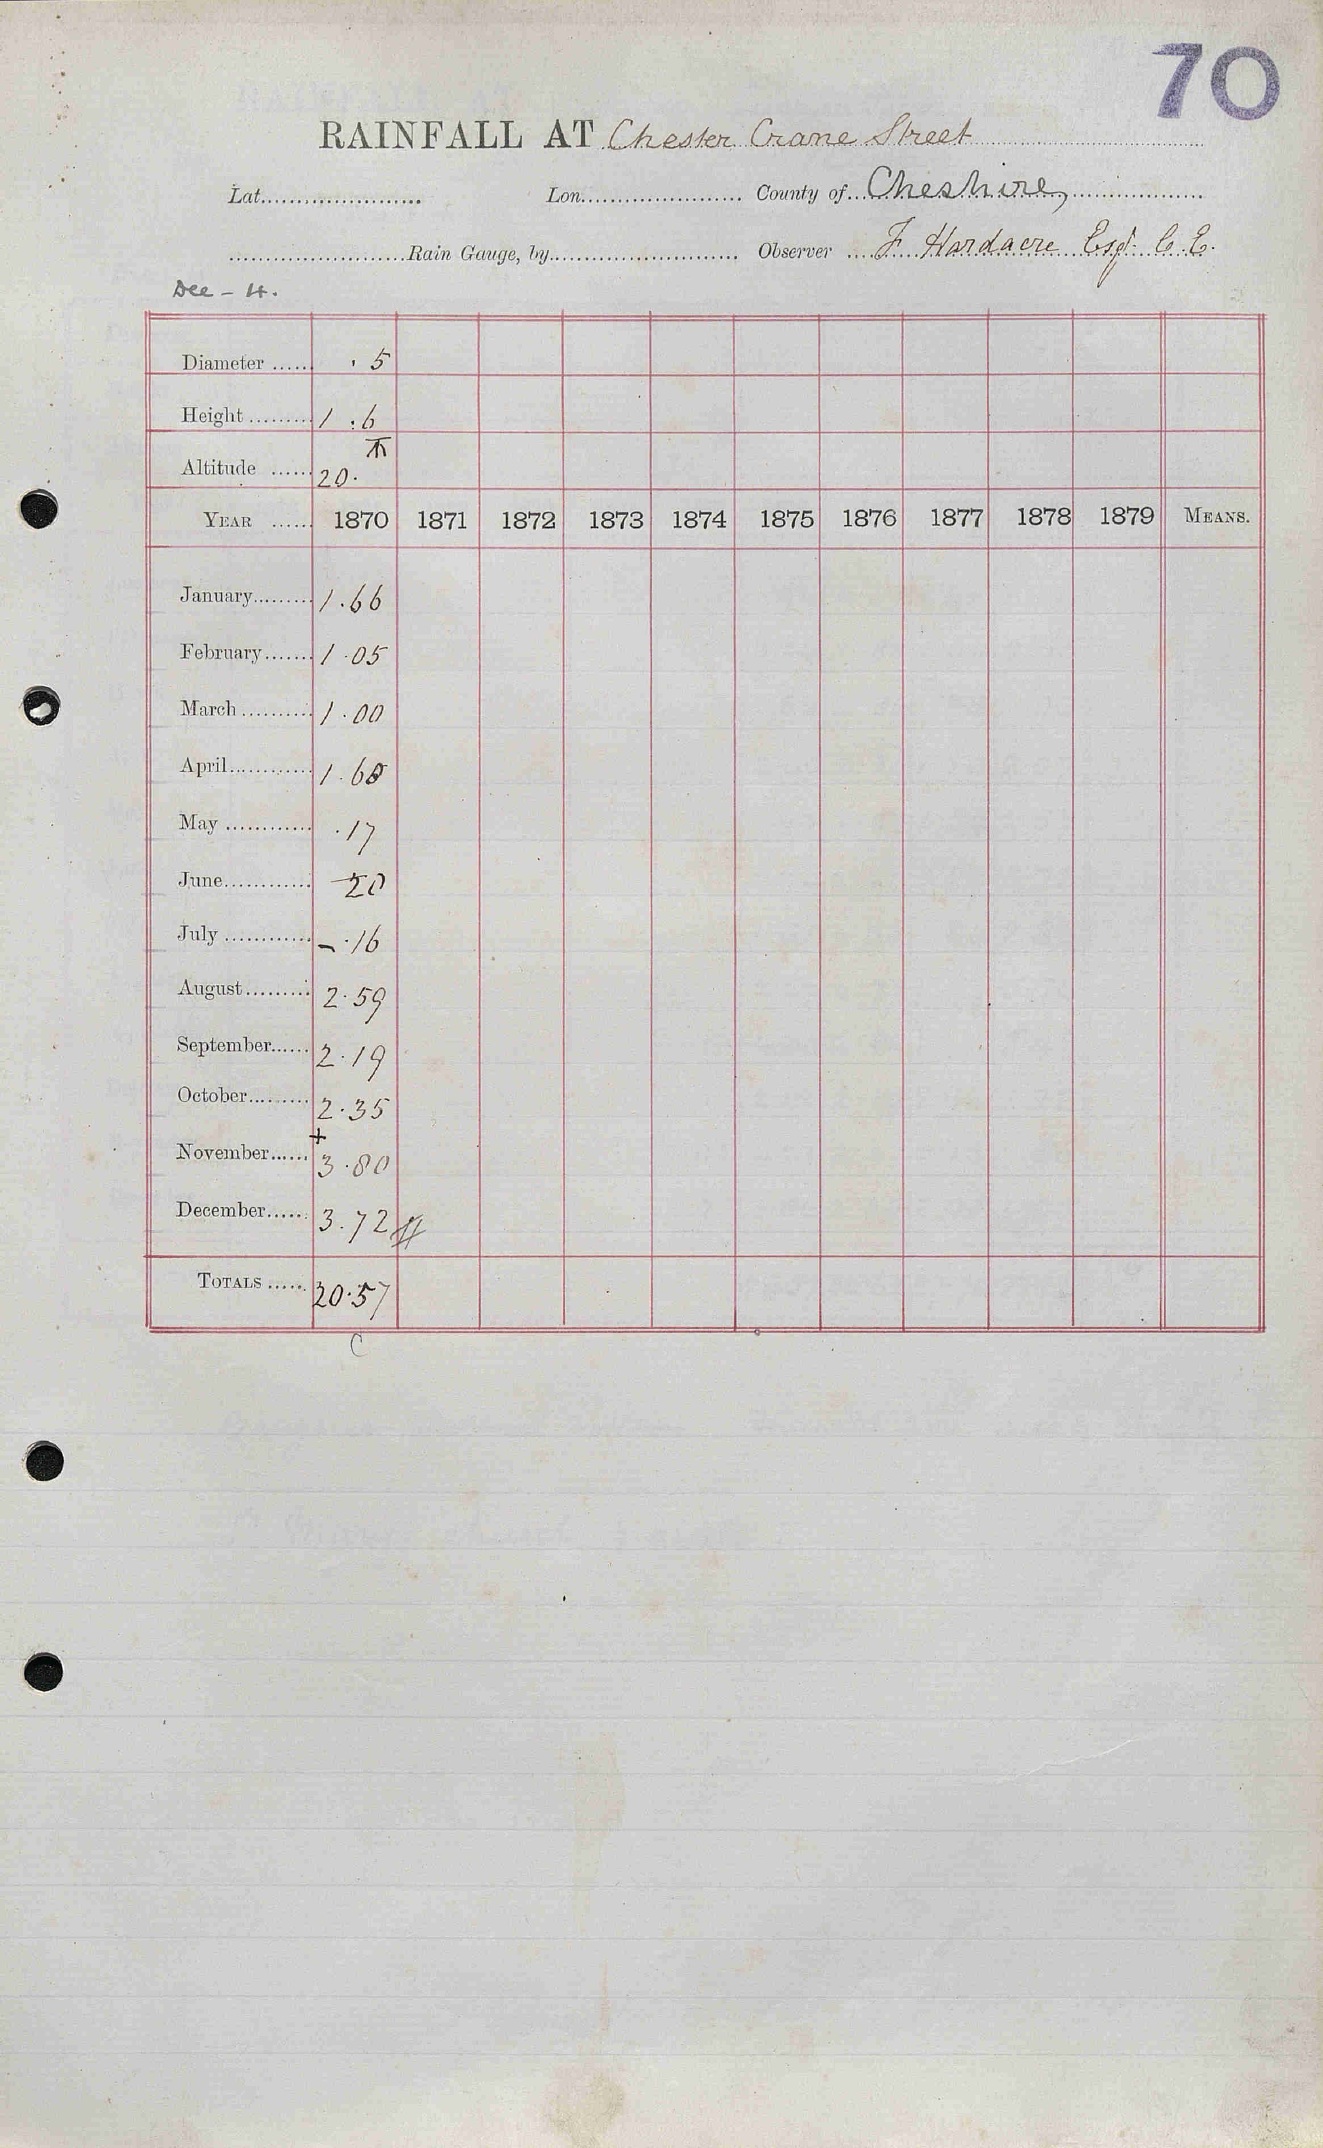 70
RAINFALL AT Chester Crane Street
Lat. Lon. County of Cheshire,
Rain Gauge, by Observer F Hardacre Esqr. C.E.
Dee - 4.
Diameter ..... · 5
Height ......... 1 . 6
Altitude ...... 20. T
YEAR ...... 1870 1871 1872 1873 1874 1875 1876 1877 1878 1879 MEANS.
January......... 1.66
February....... 1.05
March .......... 1.00
April............ 1.68
May ............ .17
June............ 20
July ............ - .16
August......... 2.59
September...... 2.19
October......... 2.35
+
November...... 3.80
December..... 3.72 #
TOTALS ..... 20.57
C